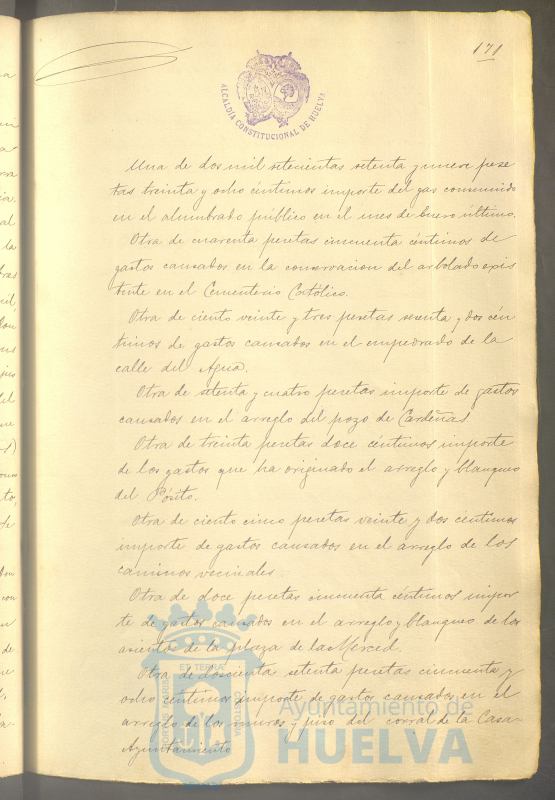 171
ALCALDÍA CONSTITUCIONAL DE HUELVA
Una de dos mil setecientas setenta y nueve pese
tas treinta y ocho céntimos importe del gas consumido
en el alumbrado publico en el mes de Enero último.
Otra de cuarenta pesetas cincuenta céntimos de
gastos causados en la conservacion del arbolado exis
tente en el Cementerio Católico.
Otra de ciento veinte y tres pesetas sesenta y dos cén
timos de gastos causados en el empedrado de la
calle del Agua.
Otra de setenta y cuatro pesetas importe de gastos
causados en el arreglo del pozo de Cardeñas
Otra de treinta pesetas doce céntimos importe
de los gastos que ha originado el arreglo y blanqueo
del Pósito.
Otra de ciento cinco pesetas veinte y dos céntimos
importe de gastos causados en el arreglo de los
caminos vecinales
Otra de doce pesetas cincuenta céntimos impor
te de gastos causados en el arreglo y blanqueo de los
asientos de la plaza de la Merced.
Otra de doscientas setenta pesetas cincuenta y
ocho céntimos importe de gastos causados en el
arreglo de los muros y piso del corral de la Casa-
Ayuntamiento
ET TERRÆ
PORTUS MARIS
CUSTODIA
Ayuntamiento de
HUELVA